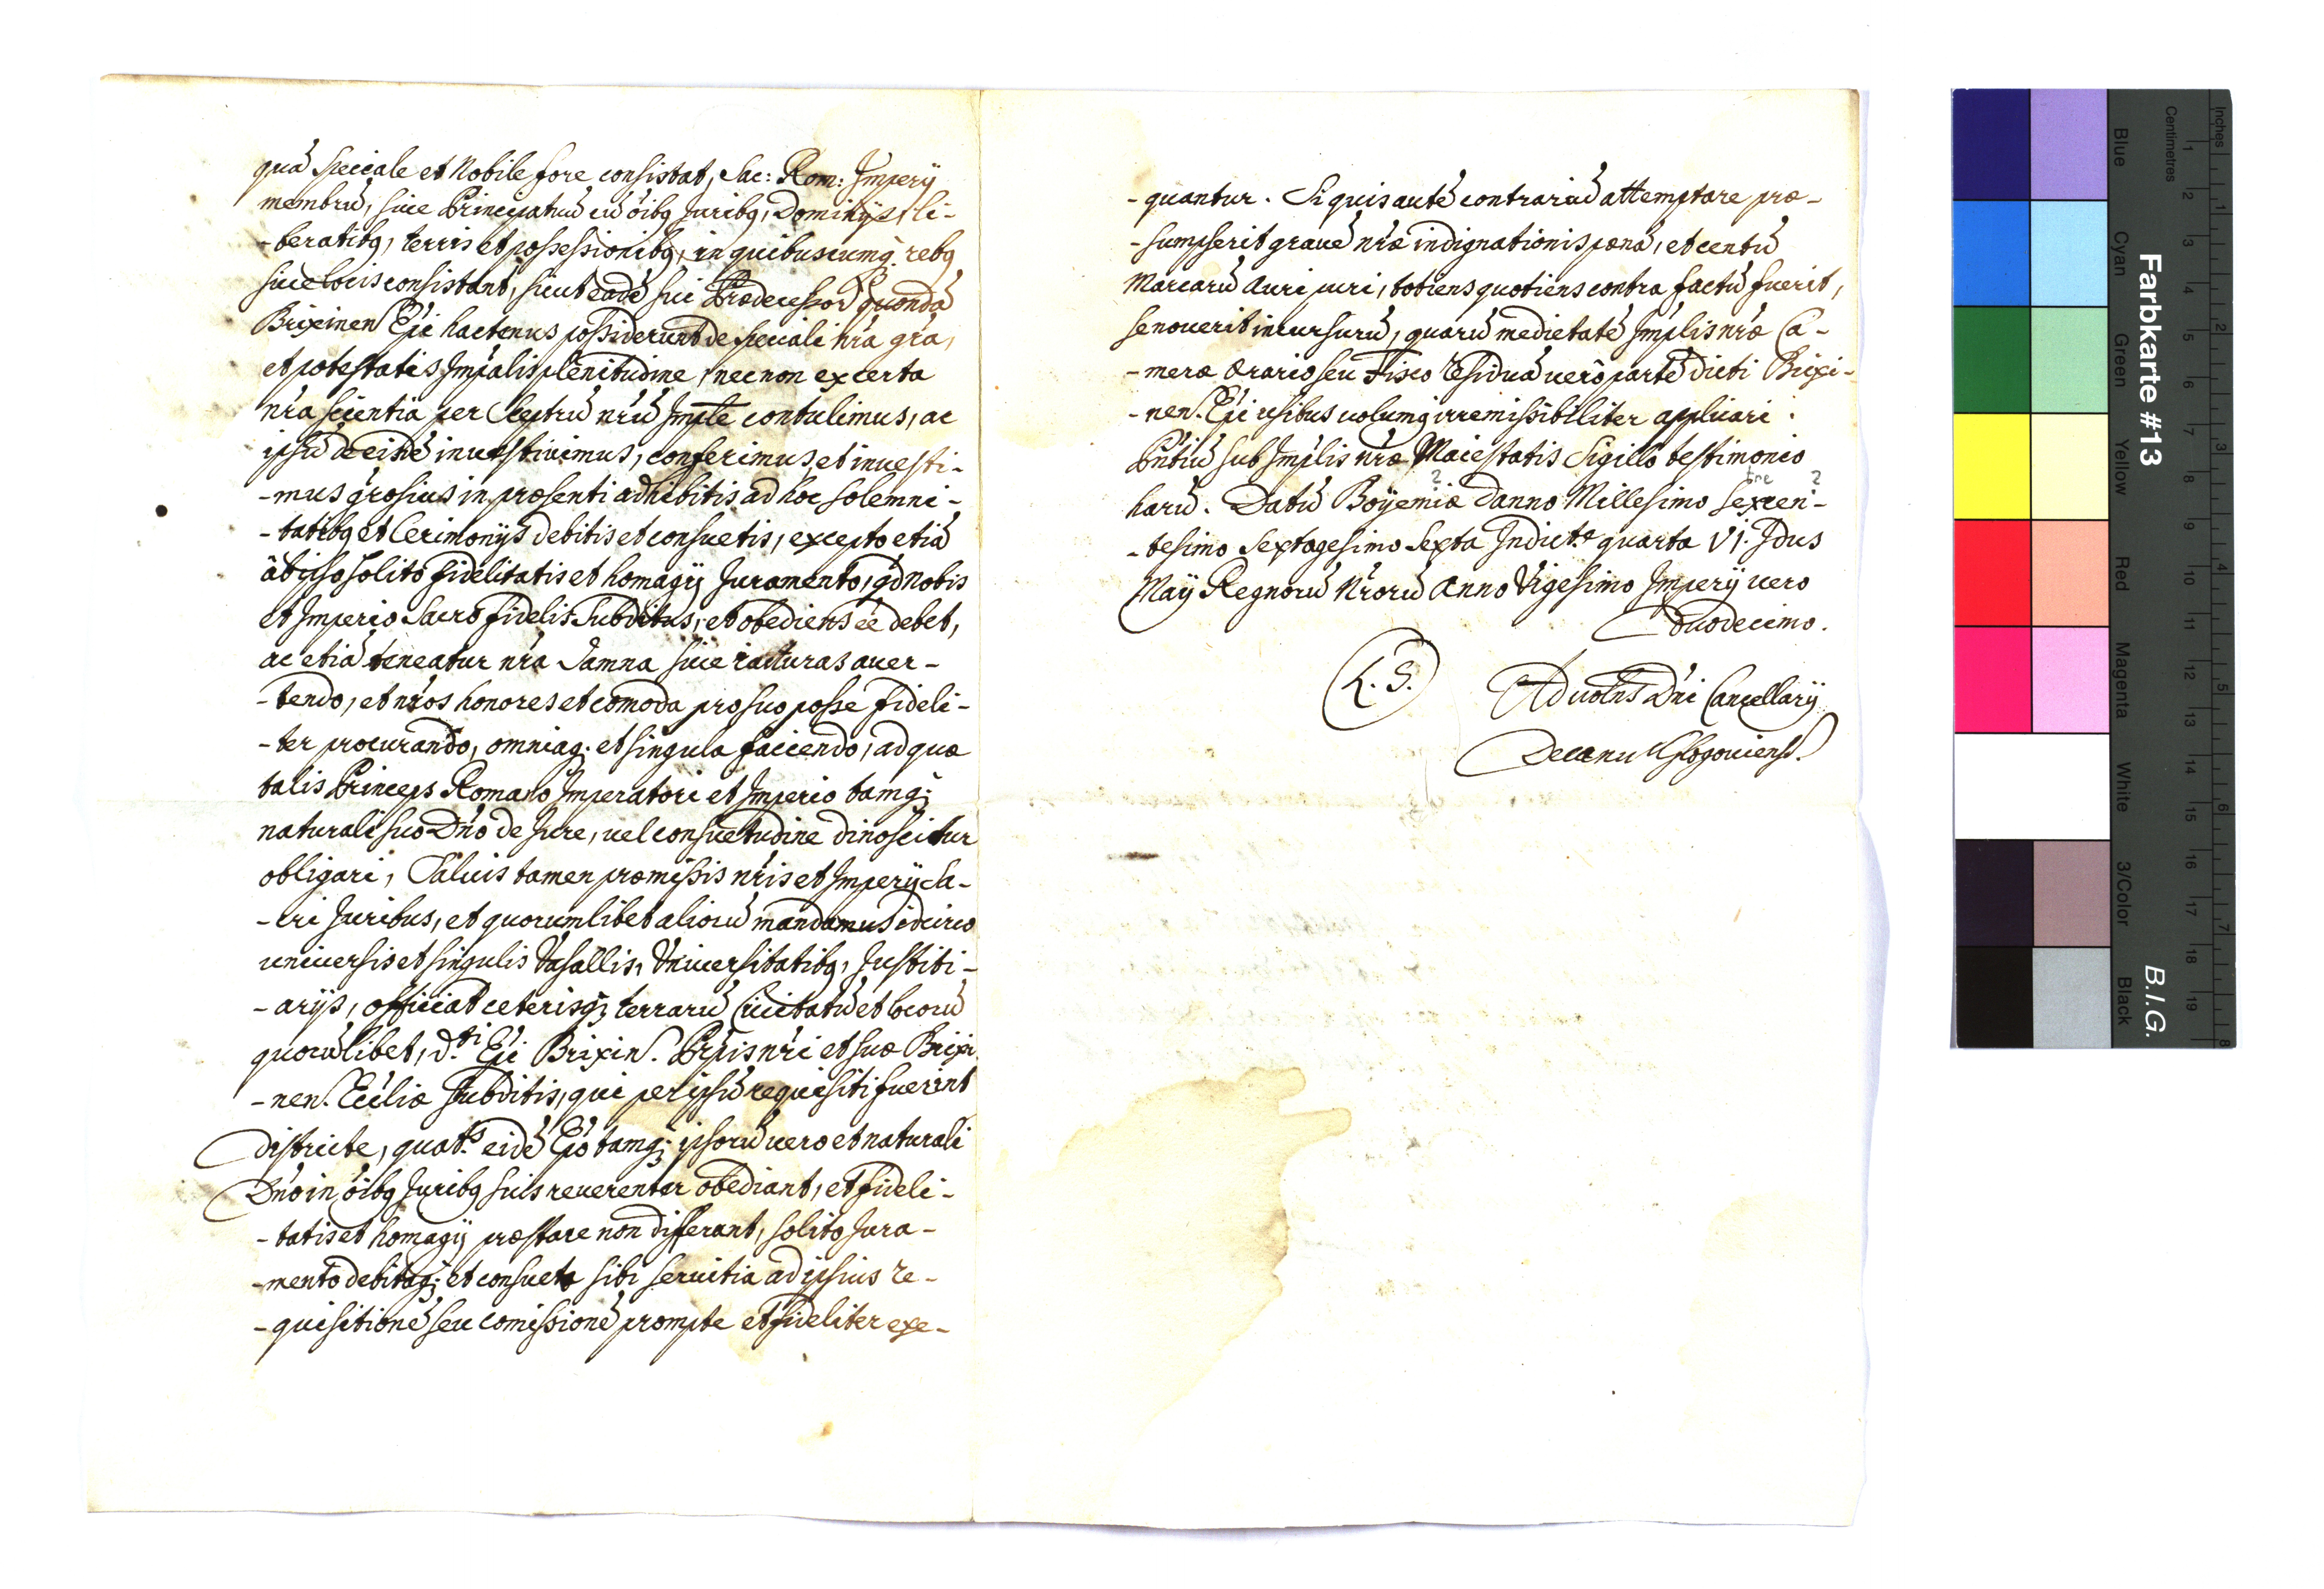 quá speciale et Nobile fore consistat, Sac: Rom: Imperÿ
membrú, sive Principatuú cú óibq Juribq, Dominÿs, li-
-bertatibq, terris et possessionibq, in quibuscumq rebq
sive locis consistant, sicut eadé sui Prædecessor quondá
Brixinen Epi hactenus possiderunt de speciali nrá grá,
et potestatis Impalis plenitudine, necnon ex certa
nrá scientia per Sceptrú nrú Imple contulimus, ac
ipsú de eisdé investivimus, conferimus, et investi-
-mus grosius in præsenti adhibitis ad hoc solemni-
-tatibq et Cerimonÿs debitis et consuetis, excepto etiá
ab ipso solito fidelitatis et homagÿ Juramento, qd Nobis
et Imperio Sacro fidelis Subditus, et obediens éé debet,
ac etiá teneatur nrá Damna sive iacturas aver-
-tendo, et nros honores et comoda pro suo posse fideli-
-ter procurando, omniaq; et singula faciendo, ad quæ
talis Princeps Romano Imperatori et Imperio tamq;
naturali suo Dno de Jure, vel consuetudine dinoscitur
obligari, Salvis tamen præmissis nris et Imperÿ Sa-
-cri Juribus, et quorumlibet aliorú mandamus idcirco
universis et singulis Vasallis, Universitatibq, Justiti-
-arÿs, officiat ceterisq; terrarú Civitatú et locorú
quorúlibet, d.ti Epi Brixin. Prpis nri et suæ Brixi
-nen. Eccliæ subditis, qui per ipsú requisiti fuerint
districte, quat.s eidé Epo tamq; ipsorú vero et naturali
Dno in óibq Juribq suis reverenter obediant, et fideli-
-tatis et homagÿ præstare non differant, solito Jura-
-mento debitaq; et consueta sibi servitia ad ipsius re-
-quisitioné seu comissioné prompte et fideliter exe-
-quantur. Si quis auté contrariú attemptare præ-
-sumpserit gravé nræ indignationis pæná, et centú
Marcarú Auri puri, totiens quotiens contra factú fuerit,
se noverit incursurú, quarú medietaté Implis nræ Ca-
-meræ Ærario seu Fisco residuá vero parté dicti Brixi-
-nen. Epi usibus volumq irremissibiliter applicari.
Pntiú sub Implis nræ Maiestatis Sigillo testimonio
harú. Datú Boÿemiæ Danno Millesimo Sexcen-
-tesimo Septagesimo Sexta Indict.e quarta VI. Idus
Maÿ Regnorú Nrorú Anno Vigesimo Imperÿ vero
duodecimo.
L. S.
Ad votns Dni Cancellarÿ
Decanu Glogoviens.